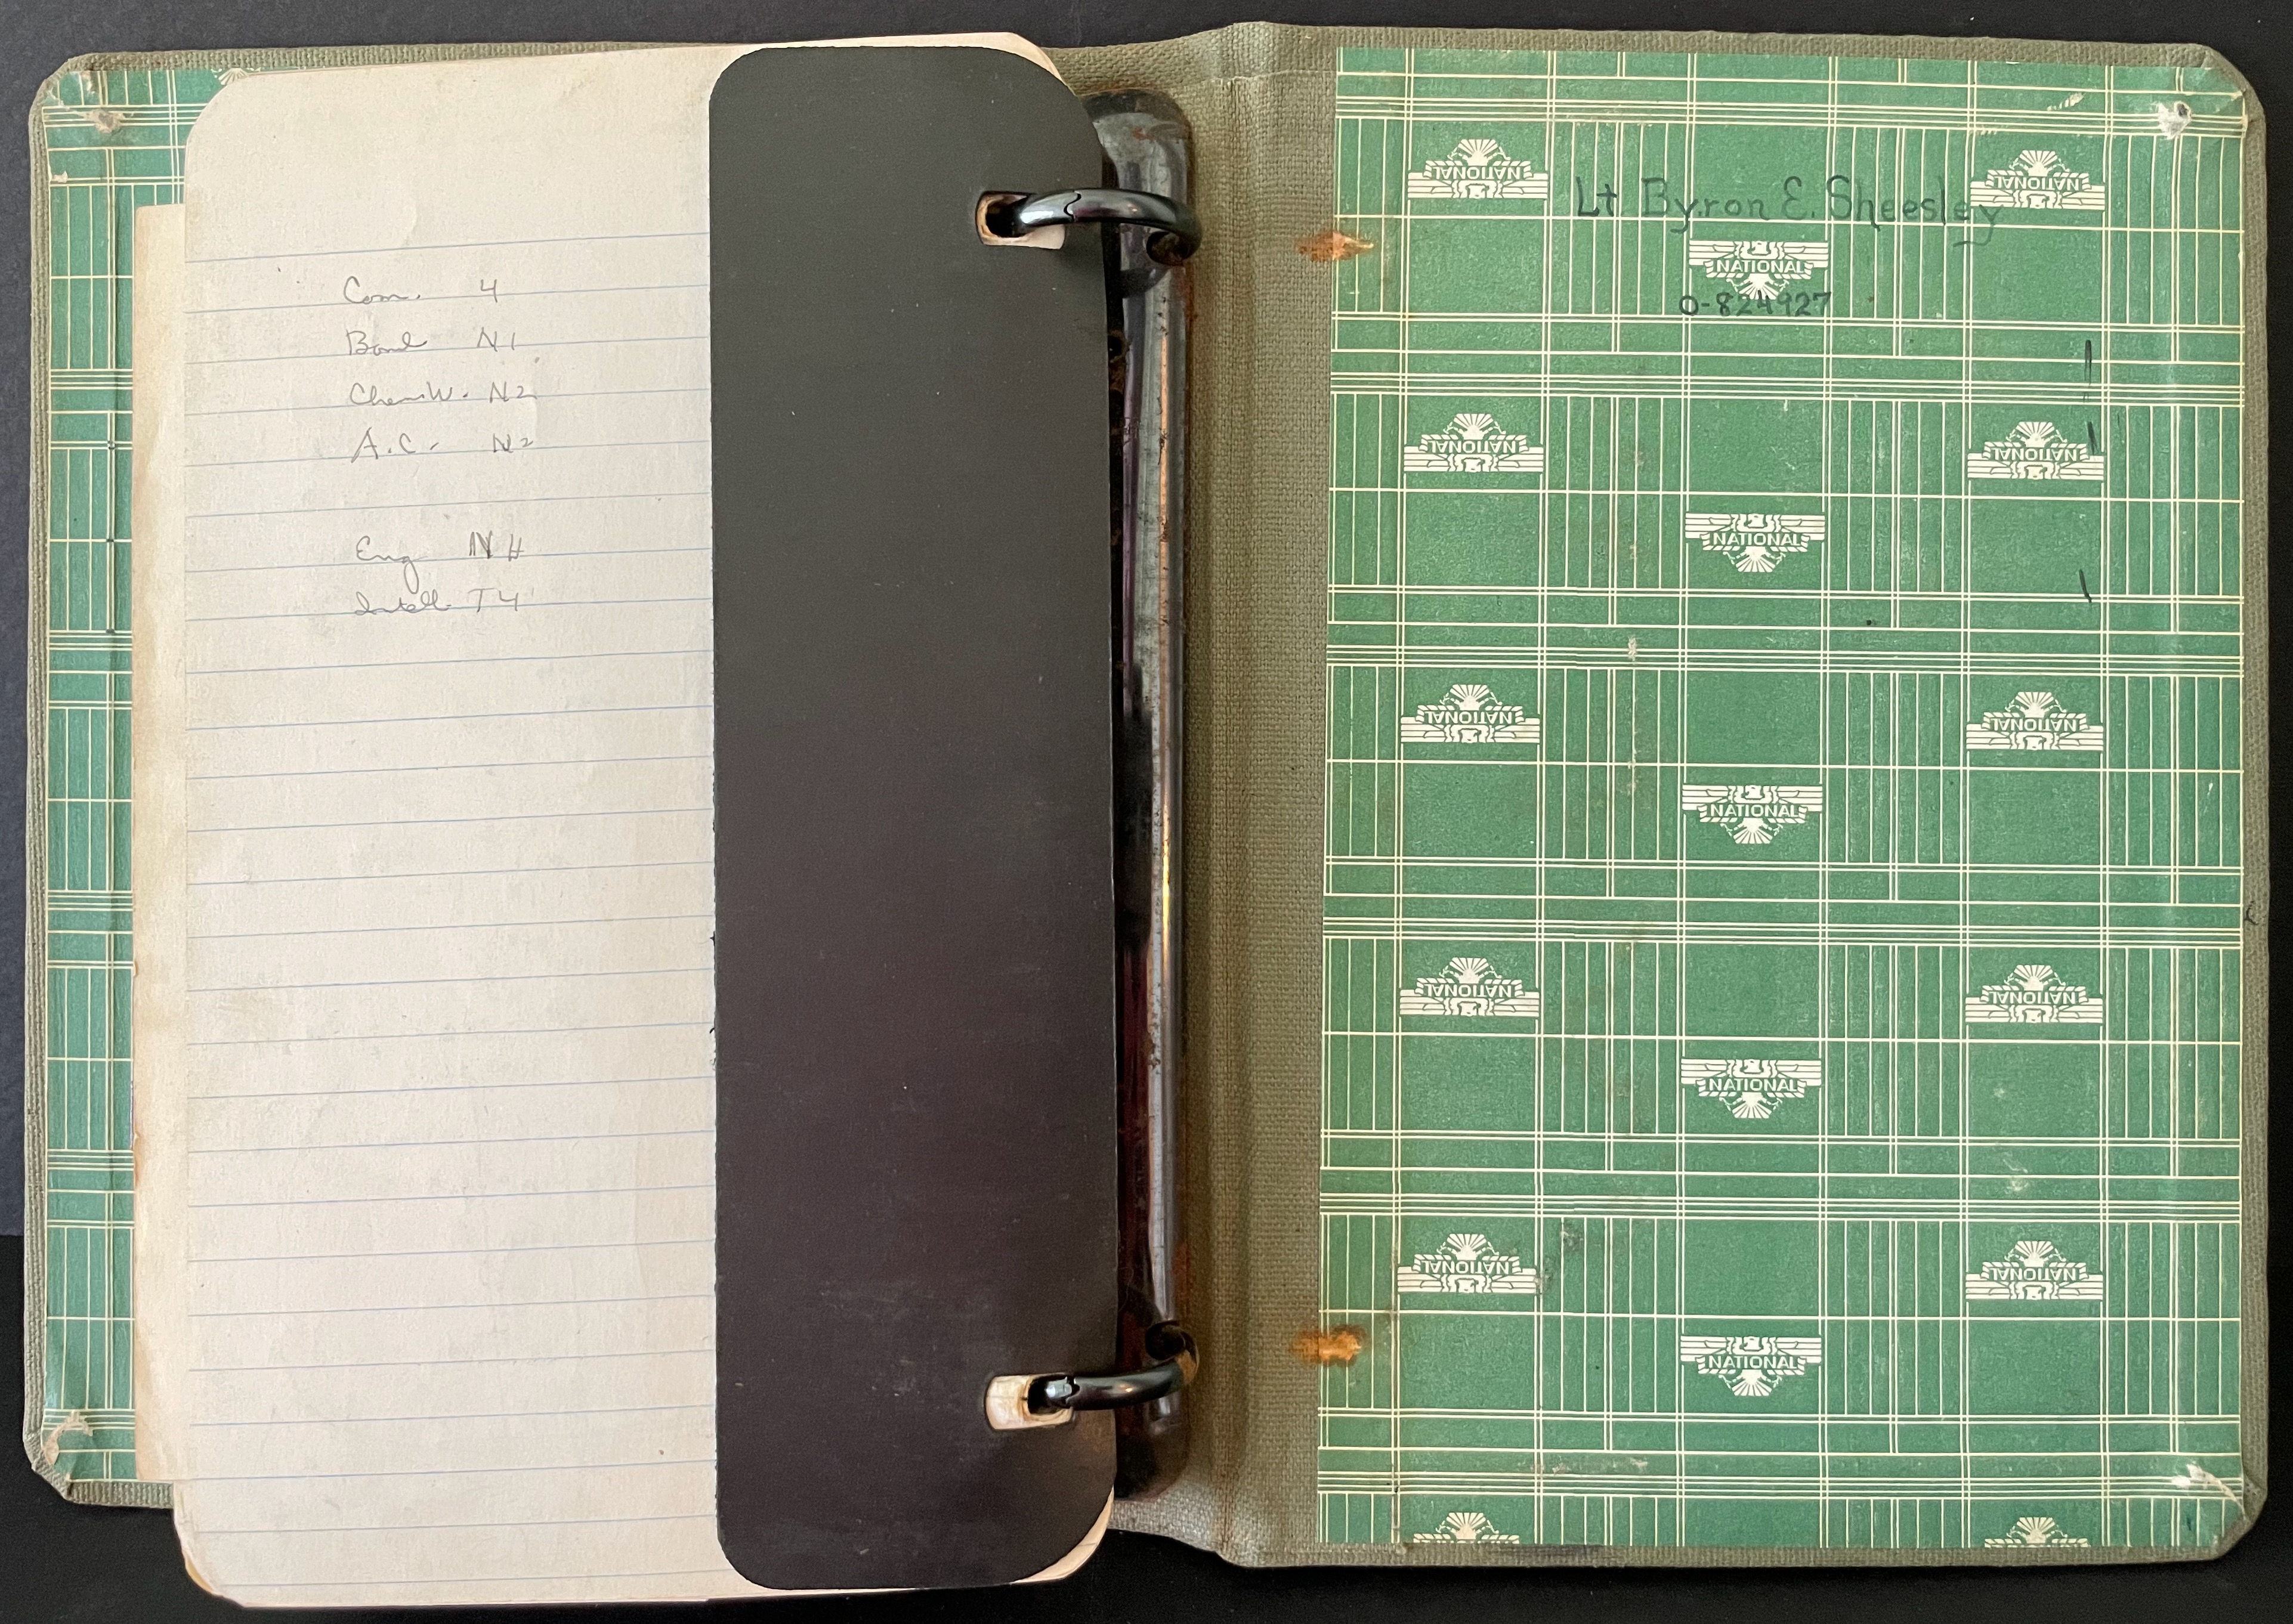 Com. 4
Bomb N1
Chem.W. N2
A.C. N2
Eng N4
Intell. T4
Lt Byron E. Sheesley
O-824927
NATIONAL NATIONAL
NATIONAL
NATIONAL NATIONAL
NATIONAL
NATIONAL NATIONAL
NATIONAL
NATIONAL NATIONAL
NATIONAL
NATIONAL NATIONAL
NATIONAL